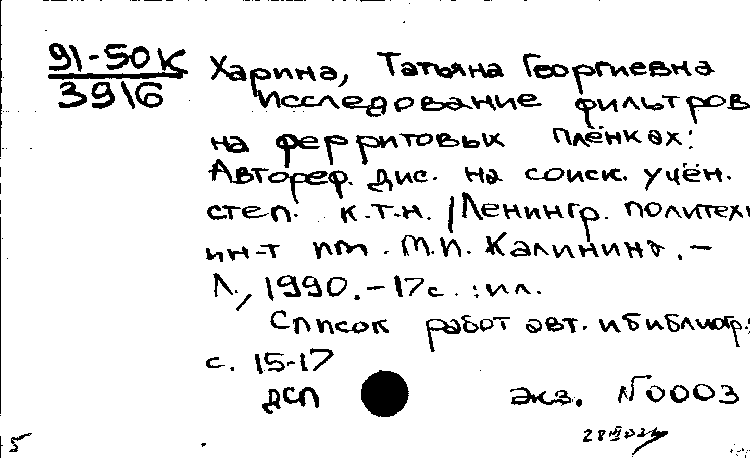 91-50К
3916
Харина, Татьяна Георгиевна
Исследование фильтров
на ферритовых плёнках:
Автореф. дис. на соиск. учён.
степ. к.т.н. /Ленингр. политехн
ин-т им. М.И. Калинина. –
Л., 1990. – 17с. : ил.
Список работ авт. и библиогр.:
с. 15-17
ДСП экз. N0003
5